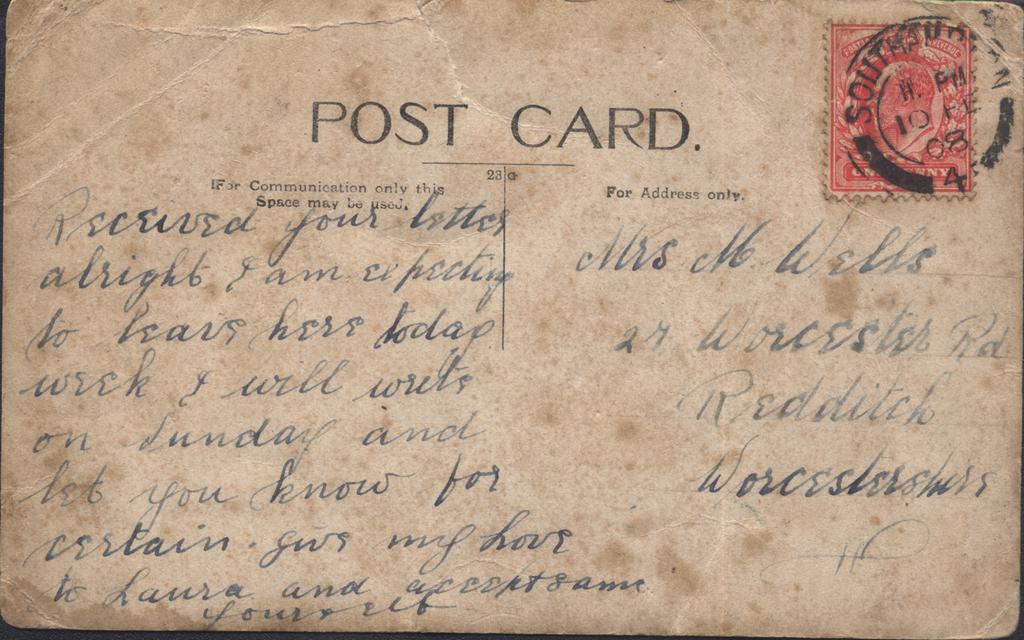 POST CARD.
23 a
For Communication only this
Space may be used.
For Address only.
SOUTHAMPTON
11. PM
10 FE
08
4
Received your letter
alright I am expecting
to leave here today
week I will write
on Sunday and
let you know for
certain. give my Love
to Laura and accept same
yourself
Mrs M. Wells
27 Worcester Rd
Redditch
Worcestershire